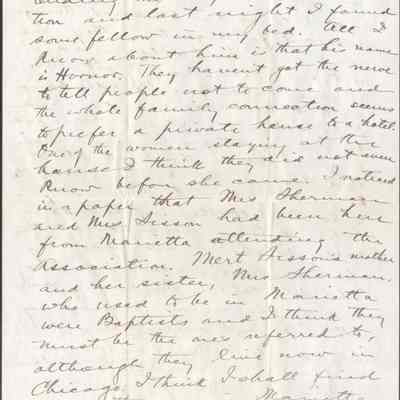 tion and last night I found
some fellow in my bed. All I
know about him is that his name
is Hoonor. They havent got the nerve
to tell people not to come and
the whole family connection seems
to prefer a private house to a hotel.
One of the women staying at the
house I think they did not even
know before she came. I noticed
in a paper that Mrs Sherman
and Mrs Sisson had been here
from Marietta attending the
Association. Mert Sisson's mother
and her sister, Mrs Sherman,
who used to be in Marietta
were Baptists and I think they
must be the ones referred to,
although they live now in
Chicago. I think I shall find
Marietta